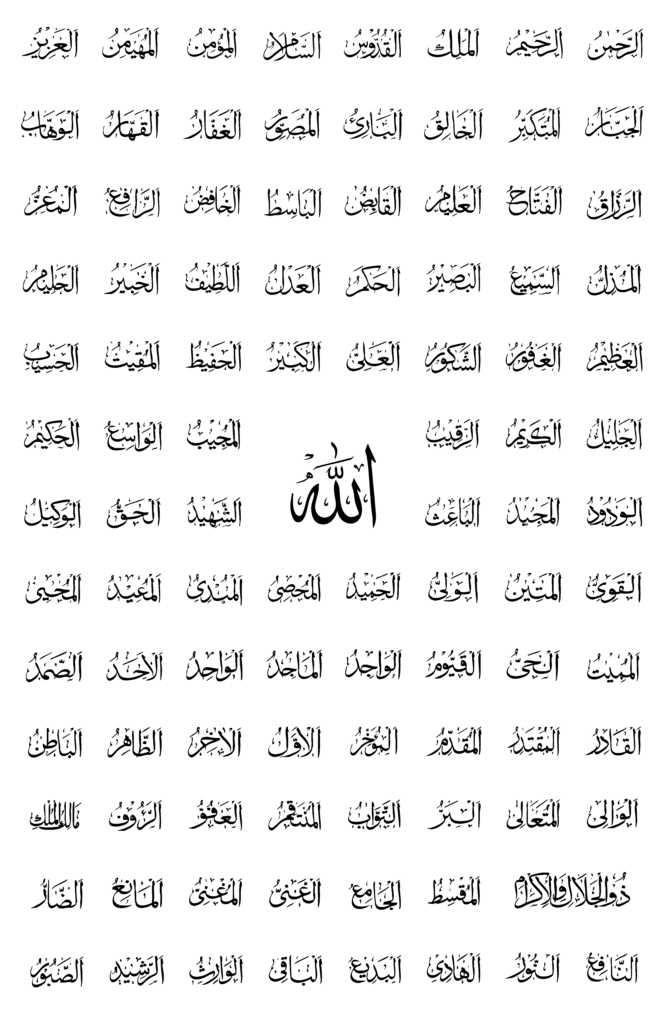 اَلرَّحْمٰنُ اَلرَّحِيْمُ اَلْمَلِكُ اَلْقُدُّوْسُ اَلسَّلَامُ اَلْمُؤْمِنُ اَلْمُهَيْمِنُ اَلْعَزِيْزُ
اَلْجَبَّارُ اَلْمُتَكَبِّرُ اَلْخَالِقُ اَلْبَارِئُ اَلْمُصَوِّرُ اَلْغَفَّارُ اَلْقَهَّارُ اَلْوَهَّابُ
اَلرَّزَّاقُ اَلْفَتَّاحُ اَلْعَلِيْمُ اَلْقَابِضُ اَلْبَاسِطُ اَلْخَافِضُ اَلرَّافِعُ اَلْمُعِزُّ
اَلْمُذِلُّ اَلسَّمِيْعُ اَلْبَصِيْرُ اَلْحَكَمُ اَلْعَدْلُ اَللَّطِيْفُ اَلْخَبِيْرُ اَلْحَلِيْمُ
اَلْعَظِيْمُ اَلْغَفُوْرُ اَلشَّكُوْرُ اَلْعَلِىُّ اَلْكَبِيْرُ اَلْحَفِيْظُ اَلْمُقِيْتُ اَلْحَسِيْبُ
اَلْجَلِيْلُ اَلْكَرِيْمُ اَلرَّقِيْبُ اَلْمُجِيْبُ اَلْوَاسِعُ اَلْحَكِيْمُ
اللّٰهُ
اَلْوَدُوْدُ اَلْمَجِيْدُ اَلْبَاعِثُ اَلشَّهِيْدُ اَلْحَقُّ اَلْوَكِيْلُ
اَلْقَوِىُّ اَلْمَتِيْنُ اَلْوَلِىُّ اَلْحَمِيْدُ اَلْمُحْصِىُ اَلْمُبْدِئُ اَلْمُعِيْدُ اَلْمُحْيِىُ
اَلْمُمِيْتُ اَلْحَىُّ اَلْقَيُّوْمُ اَلْوَاجِدُ اَلْمَاجِدُ اَلْوَاحِدُ اَلْاَحَدُ اَلصَّمَدُ
اَلْقَادِرُ اَلْمُقْتَدِرُ اَلْمُقَدِّمُ اَلْمُؤَخِّرُ اَلْاَوَّلُ اَلْاٰخِرُ اَلظَّاهِرُ اَلْبَاطِنُ
اَلْوَالِىُ اَلْمُتَعَالِىُ اَلْبَرُّ اَلتَّوَّابُ اَلْمُنْتَقِمُ اَلْعَفُوُّ اَلرَّءُوْفُ مَالِكُ الْمُلْكِ
ذُوالْجَلَالِ وَالْاِكْرَامِ اَلْمُقْسِطُ اَلْجَامِعُ اَلْغَنِىُّ اَلْمُغْنِىُ اَلْمَانِعُ اَلضَّارُّ
اَلنَّافِعُ اَلنُّوْرُ اَلْهَادِىُ اَلْبَدِيْعُ اَلْبَاقِىُ اَلْوَارِثُ اَلرَّشِيْدُ اَلصَّبُوْرُ